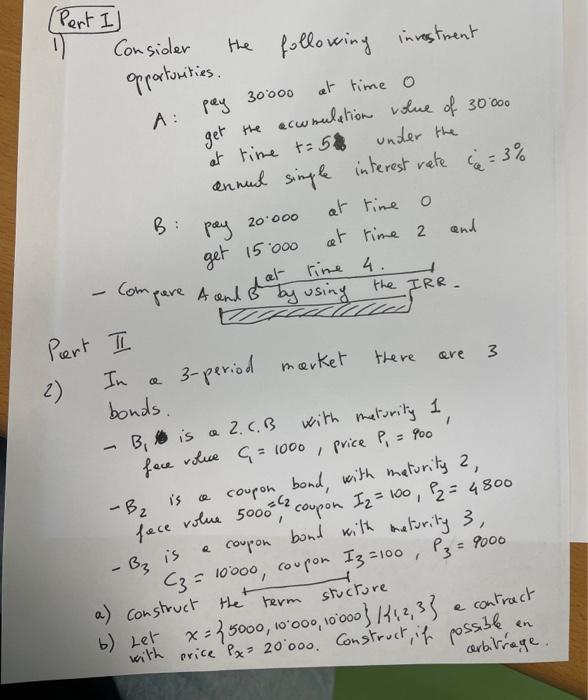 Part I
1) Consider the following investment
opportunities.
A: pay 30'000 at time 0
get the accumulation value of 30'000
at time t=5 under the
annual simple interest rate ia = 3%
B: pay 20'000 at time 0
get 15'000 at time 2 and
at time 4.
- Compare A and B by using the IRR.
Part II
2) In a 3-period market there are 3
bonds.
- B1 is a Z.C.B with maturity 1,
face value C1 = 1000, price P1 = 900
- B2 is a coupon bond, with maturity 2,
face value 5000 = C2, coupon I2 = 100, P2 = 4800
- B3 is a coupon bond with maturity 3,
C3 = 10'000, coupon I3 = 100, P3 = 9000
a) Construct the term structure
b) Let x = {5000, 10'000, 10'000} / {1, 2, 3} a contract
with price Px = 20'000. Construct, if possible an
arbitrage.